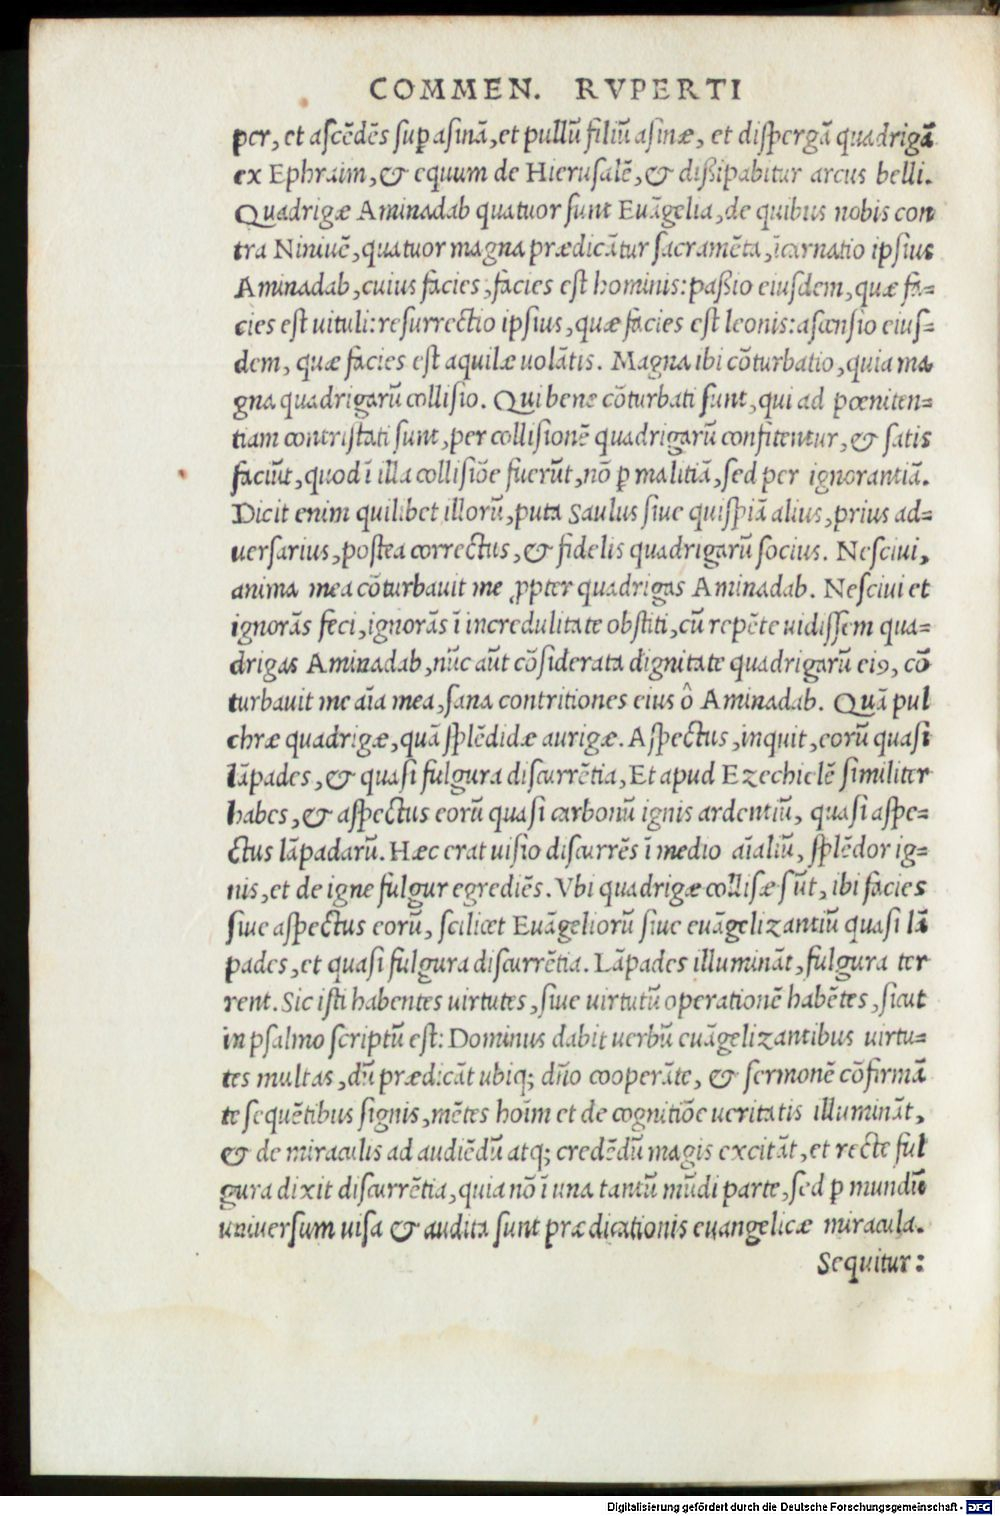 COMMEN. RVPERTI
per, et ascēdēs sup̱ asinā, et pullū filiū asinæ, et dispergā quadrigā
ex Ephraim, & equum de Hierusalē, & dißipabitur arcus belli.
Quadrigæ Aminadab quatuor sunt Euāgelia, de quibus nobis con
tra Niniuē, quatuor magna prædicātur sacramēta, īcarnatio ipsius
Aminadab, cuius facies, facies est hominis: paßio eiusdem, quæ fa=
cies est uituli: resurrectio ipsius, quæ facies est leonis: ascensio eius=
dem, quæ facies est aquilæ uolātis. Magna ibi cōturbatio, quia ma
gna quadrigarū collisio. Qui bene cōturbati sunt, qui ad pœniten=
tiam contristati sunt, per collisionē quadrigarū confitentur, & satis
faciūt, quod ī illa collisiōe fuerūt, nō ꝑ malitiā, sed per ignorantiā.
Dicit enim quilibet illorū, puta Saulus siue quispiā alius, prius ad=
uersarius, postea correctus, & fidelis quadrigarū socius. Nesciui,
anima mea cōturbauit me ꝓpter quadrigas Aminadab. Nesciui et
ignorās feci, ignorās ī incredulitate obstiti, cū repēte uidissem qua=
drigas Aminadab, nūc aūt cōsiderata dignitate quadrigarū eiꝰ, cō
turbauit me aīa mea, sana contritiones eius ô Aminadab. Quā pul
chræ quadrigæ, quā splēdidæ aurigæ. Aspectus, inquit, eorū quasi
lāpades, & quasi fulgura discurrētia, Et apud Ezechielē similiter
habes, & aspectus eorū quasi carbonū ignis ardentiū, quasi aspe=
ctus lāpadarū. Hæc erat uisio discurrēs ī medio aīaliū, splēdor ig=
nis, et de igne fulgur egrediēs. Vbi quadrigæ collisæ sūt, ibi facies
siue aspectus eorū, scilicet Euāgeliorū siue euāgelizantiū quasi lā
pades, et quasi fulgura discurrētia. Lāpades illumināt, fulgura ter
rent. Sic isti habentes uirtutes, siue uirtutū operationē habētes, sicut
in psalmo scriptū est: Dominus dabit uerbū euāgelizantibus uirtu=
tes multas, dū prædicāt ubiq; dn̄o cooperāte, & sermonē cōfirmā
te sequētibus signis, mētes hoīm et de cognitiōe ueritatis illumināt,
& de miraculis ad audiēdū atq; credēdū magis excitāt, et recte ful
gura dixit discurrētia, quia nō ī una tantū mūdi parte, sed ꝑ mundū
uniuersum uisa & audita sunt prædicationis euangelicæ miracula.
Sequitur:
Digitalisierung gefördert durch die Deutsche Forschungsgemeinschaft - DFG